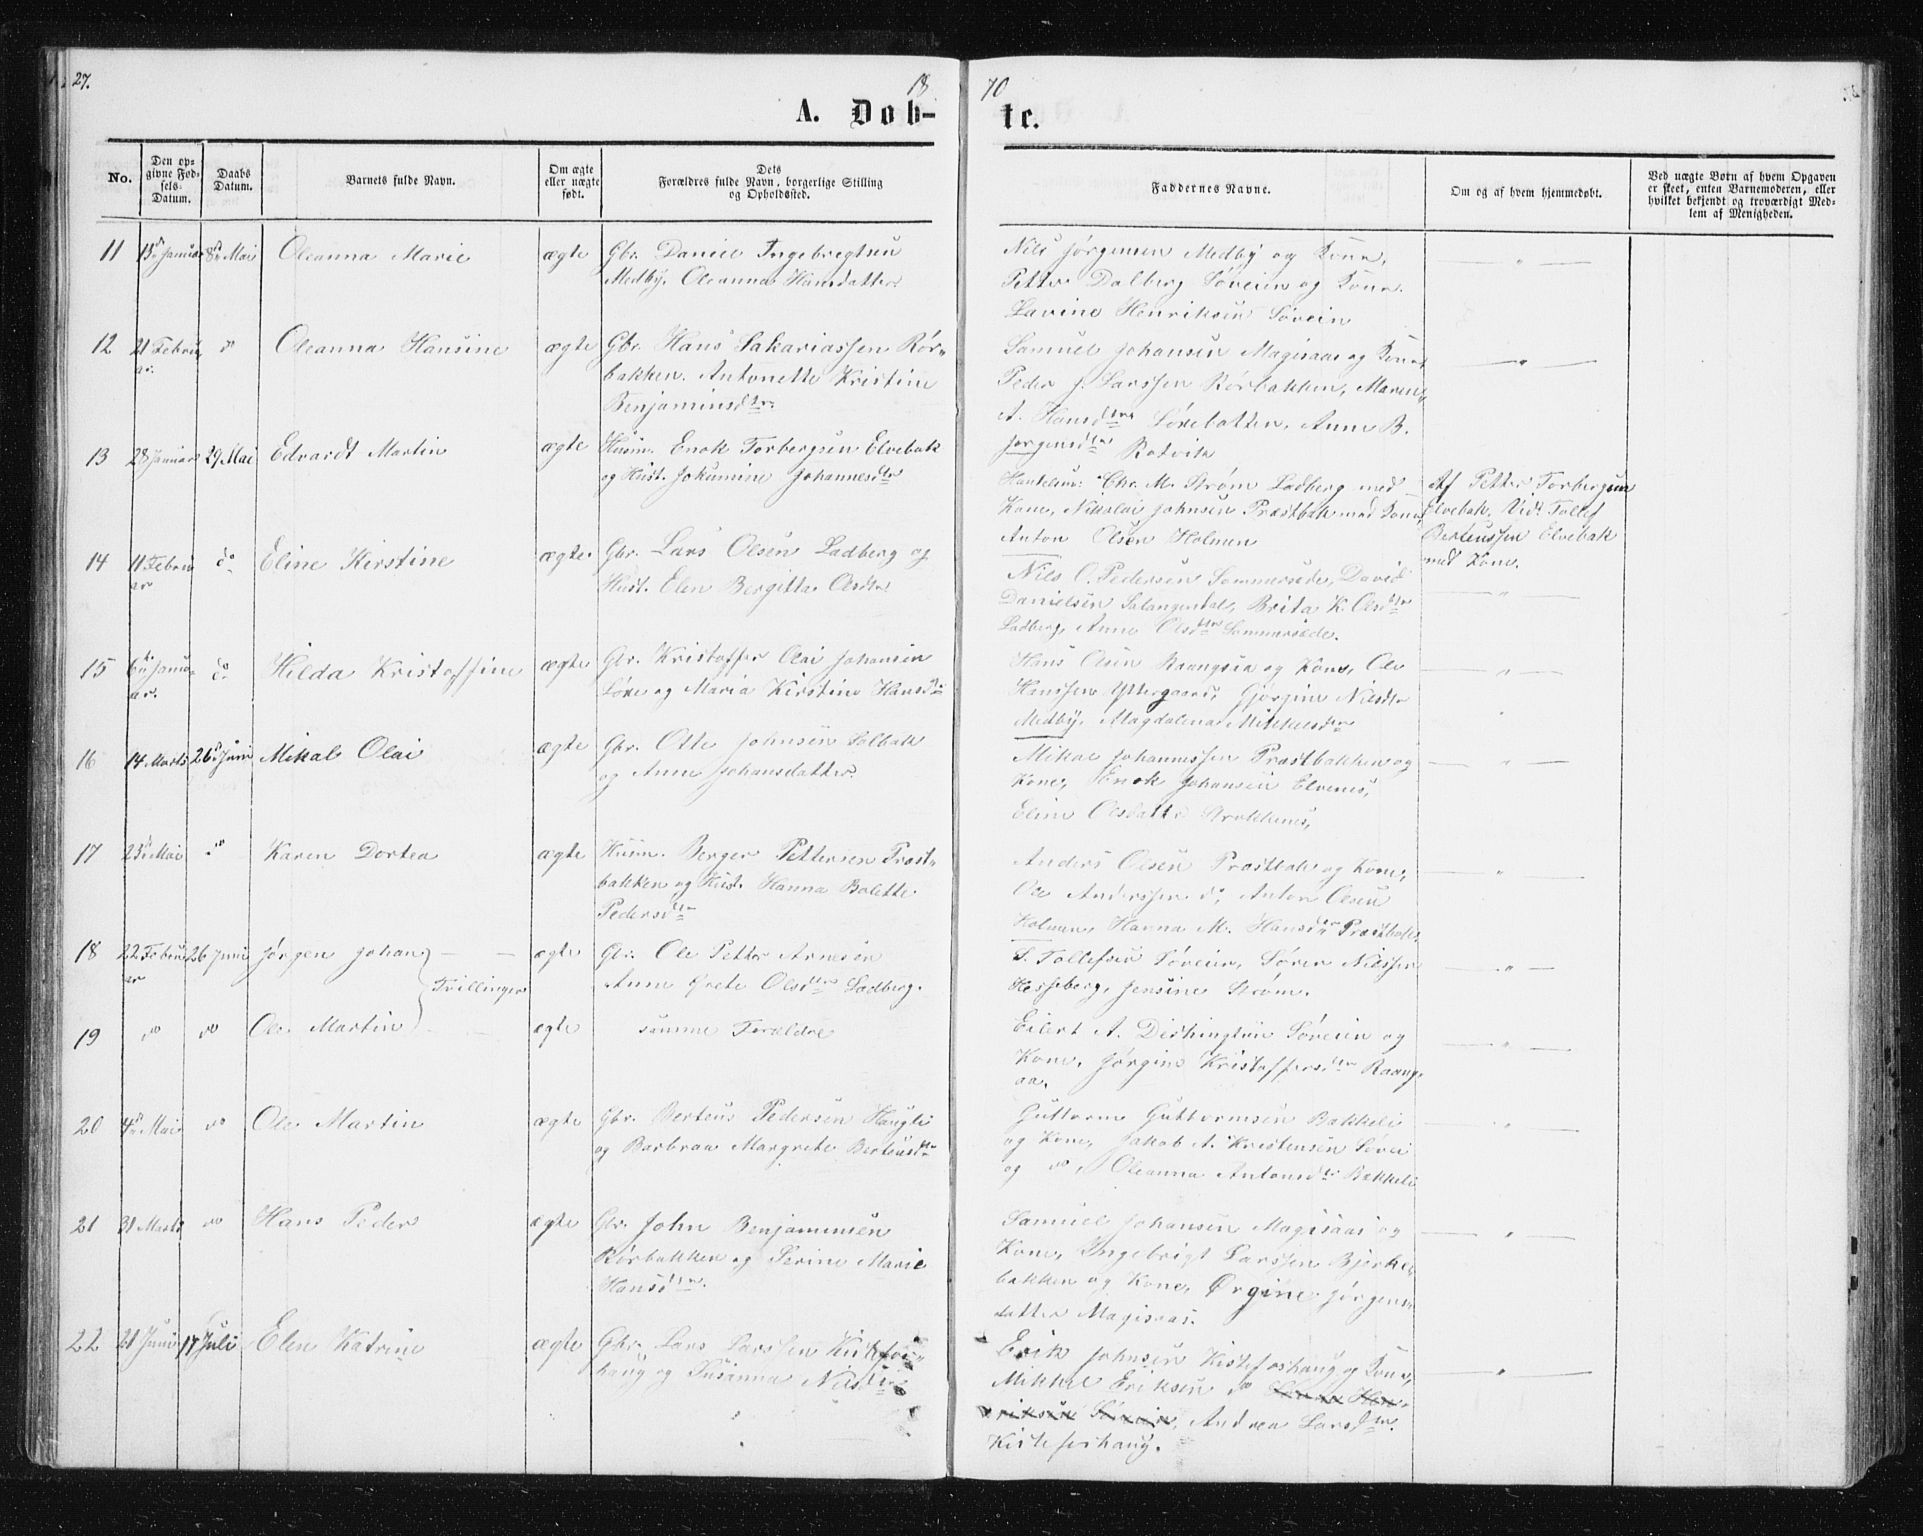 27.
18
70
A. Døb-
te.
No.
Den op-
givne Fød-
sels-
Datum.
Daabs
Datum.
Barnets fulde Navn.
Om ægte
eller uægte
født.
Dets
Forældres fulde Navn, borgerlige Stilling
og Opholdssted.
Faddernes Navne.
Om og af hvem hjemmedøbt.
Ved uægte Børn af hvem Opgaven
er skeet, enten Barnemoderen, eller
hvilket bekjendt og troværdigt Med-
lem af Menigheden.
11 Januar 8de Mai Oleanna Marie ægte Gbr. Daniel Ingebregtsen
Medby. Oleanna Hansdatter
Nils Jørgensen Medby og Kone,
Petter Dalberg Søveien og Kone.
Lavine Henriksen Søvein
12 21 Febru do Oleanna Hansine ægte Gbr. Hans Sakariassen Rør-
ar. bakken. Antonette Kristine
Benjaminsdtr.
Samuel Johansen Magisaas og Kone,
Peder J. Larssen Rørbakken, Maren
A. Hansdtr Løvebakken, Anne B.
Jørgensdtr Rotvik
13 28 Januar 29 Mai Edvardt Martin ægte Husm. Enok Torbergsen Elvebak
og Hust. Jokumine Johannesdtr
Chr. M. Strøm Ladberg med
Kone, Nikolai Johnsen Præstbak med Kone,
Anton Olsen Holmen
Af Petter Torbergsen
Elvebak. Vid. Tollef
Berteussen Elvebak
med Kone.
14 11 Febru do Eline Kirstine ægte Gbr. Lars Olsen Ladberg og
ar Hust. Elen Bergitta Olsdtr
Nils O. Pedersen Sommersæde, David
Danielsen Salangsdal, Brita K. Olsdtr
Ladberg, Anne Olsdtr Sommersæde.
15 6te Janu- do Hilda Kristoffine ægte Gbr. Kristoffer Olai Johansen
ar. Løve og Maria Kirstine Hansdtr
Hans Olsen Raangsaa og Kone, Ole
Hanssen Yttergaard, Gjørgine Nilsdtr
Medby, Magdalena Mikkelsdtr
16 14 Marts 26de Juni Mikal Olai ægte Gbr. Otte Johnsen Solbak
og Anne Johansdatter
Mikal Johannessen Præstbakken og
Kone, Enok Johansen Elvenes,
Eline Olsdatter
17 23de Mai do Karen Dortea ægte Husm. Berger Pettersen Præst-
bakken og Hust. Hanna Bolette
Pedersdtr
Anders Olsen Præstbak og Kone,
Ole Anderssen do, Anton Olsen
Holmen, Hanna M. Hansdtr Præstbak.
18 22 Febru 26 Juni Jørgen Johan ægte Gbr. Ole Petter Arnesen
ar Tvillinger Anne Grete Olsdtr Ladberg.
Tollefsen Søveien, Søren Nilssen
Hesseberg, Jensine Strøm.
19 do do Ole Martin ægte samme Forældre
Eilert A. Dishington Søveien og
Kone, Jørgine Kristoffersdtr Raang-
aa.
20 4de Mai do Ole Martin ægte Gbr. Berteus Pedersen Haugli
og Barbraa Margrete Berteusdtr
Guttorm Guttormsen Bakkeli
og Kone, Jakob A. Kristensen Søvei
og do, Oleanna Antonsdtr Bakkeli
21 31 Marts do Hans Peder ægte Gbr. John Benjaminsen
Rørbakken og Serine Marie
Hansdtr.
Samuel Johansen Magisaas og
Kone, Ingebrigt Larssen Bjerke-
bakken og Kone, Ørgine Jørgens-
datter Magisaas.
22 21 Juni 17 Juli Elen Katrine ægte Gbr. Lars Larssen Kistefos-
haug og Susanna Nilsdtr
Erik Johnsen Kistefoshaug og Kone,
Mikkel Eriksen do Lavine Hen-
riksen Søvein, Andrea Larsdtr.
Kistefoshaug.